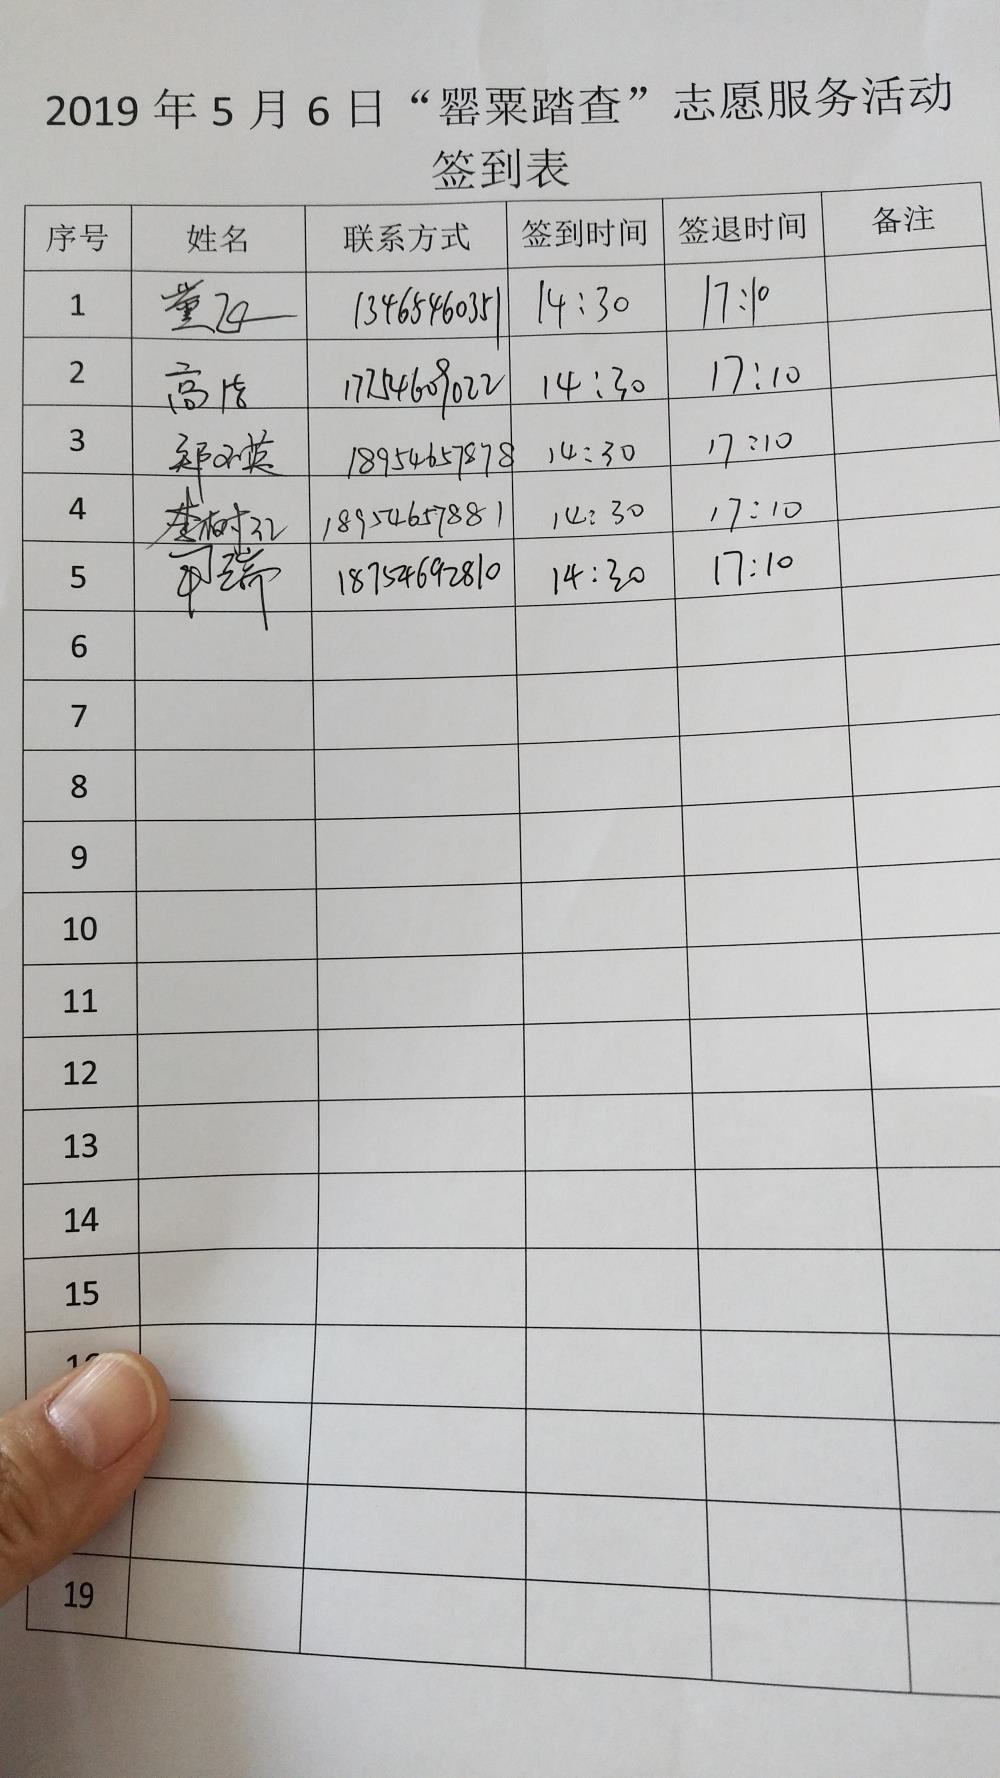 2019 年 5 月 6 日“罂粟踏查”志愿服务活动
签到表
序号 姓名 联系方式 签到时间 签退时间 备注
1 13465460351 14:30 17:10
2 高洁 17754609022 14:30 17:10
3 18954657878 14:30 17:10
4 18954657881 14:30 17:10
5 18754692810 14:30 17:10
6
7
8
9
10
11
12
13
14
15
19